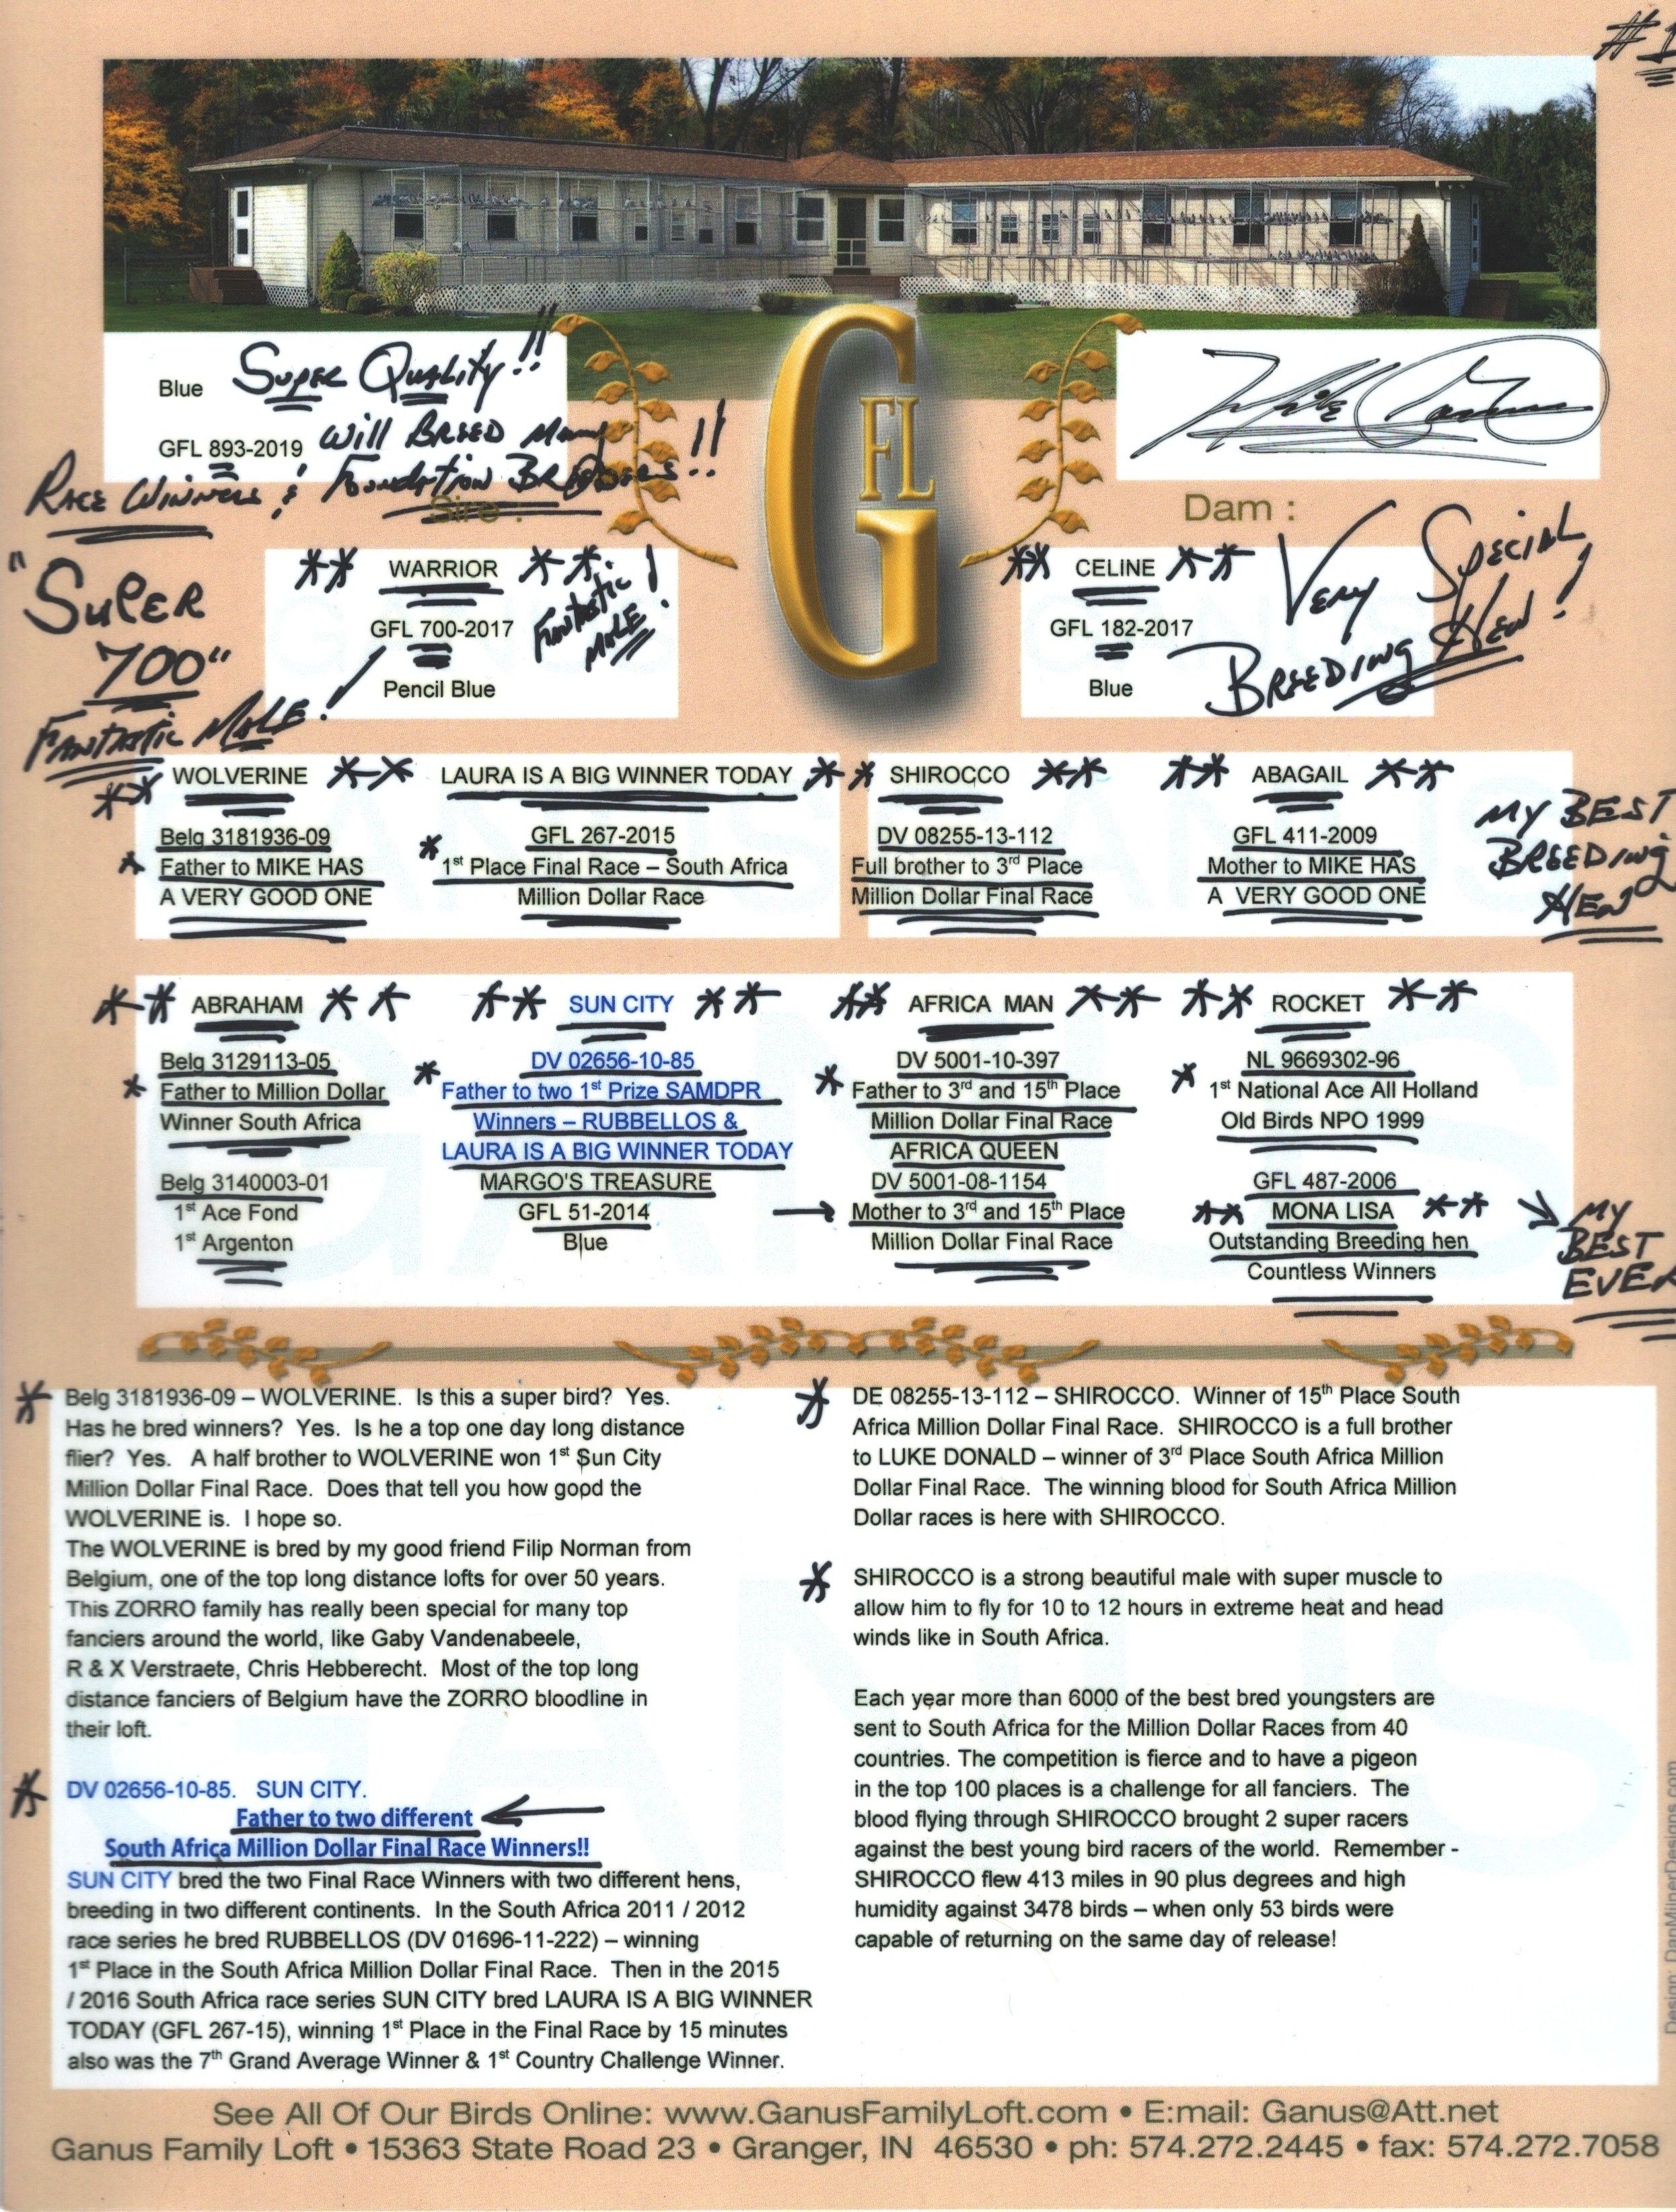 #1
Blue
Super Quality!!
GFL 893-2019
Will Breed Many
Race Winners & Foundation Breeders!!
Mike Ganus
GFL
G
Sire :
Dam :
"Super
700"
Fantastic Male!
** WARRIOR **
GFL 700-2017
Pencil Blue
Fantastic
Male!
** CELINE **
GFL 182-2017
Blue
Very Special
Breeding Hen!
** WOLVERINE **
Belg 3181936-09
* Father to MIKE HAS
A VERY GOOD ONE
LAURA IS A BIG WINNER TODAY **
GFL 267-2015
* 1st Place Final Race – South Africa
Million Dollar Race
SHIROCCO **
DV 08255-13-112
Full brother to 3rd Place
Million Dollar Final Race
** ABAGAIL **
GFL 411-2009
Mother to MIKE HAS
A VERY GOOD ONE
My Best
Breeding
Hen
** ABRAHAM **
Belg 3129113-05
* Father to Million Dollar
Winner South Africa
Belg 3140003-01
1st Ace Fond
1st Argenton
** SUN CITY **
DV 02656-10-85
* Father to two 1st Prize SAMDPR
Winners – RUBBELLOS &
LAURA IS A BIG WINNER TODAY
MARGO'S TREASURE
GFL 51-2014
Blue
** AFRICA MAN **
DV 5001-10-397
* Father to 3rd and 15th Place
Million Dollar Final Race
AFRICA QUEEN
DV 5001-08-1154
Mother to 3rd and 15th Place
Million Dollar Final Race
** ROCKET **
NL 9669302-96
* 1st National Ace All Holland
Old Birds NPO 1999
GFL 487-2006
** MONA LISA **
Outstanding Breeding hen
Countless Winners
My
Best
Ever
* Belg 3181936-09 – WOLVERINE. Is this a super bird? Yes.
Has he bred winners? Yes. Is he a top one day long distance
flier? Yes. A half brother to WOLVERINE won 1st Sun City
Million Dollar Final Race. Does that tell you how good the
WOLVERINE is. I hope so.
The WOLVERINE is bred by my good friend Filip Norman from
Belgium, one of the top long distance lofts for over 50 years.
This ZORRO family has really been special for many top
fanciers around the world, like Gaby Vandenabeele,
R & X Verstraete, Chris Hebberecht. Most of the top long
distance fanciers of Belgium have the ZORRO bloodline in
their loft.
* DV 02656-10-85. SUN CITY.
Father to two different
South Africa Million Dollar Final Race Winners!!
SUN CITY bred the two Final Race Winners with two different hens,
breeding in two different continents. In the South Africa 2011 / 2012
race series he bred RUBBELLOS (DV 01696-11-222) – winning
1st Place in the South Africa Million Dollar Final Race. Then in the 2015
/ 2016 South Africa race series SUN CITY bred LAURA IS A BIG WINNER
TODAY (GFL 267-15), winning 1st Place in the Final Race by 15 minutes
also was the 7th Grand Average Winner & 1st Country Challenge Winner.
* DE 08255-13-112 – SHIROCCO. Winner of 15th Place South
Africa Million Dollar Final Race. SHIROCCO is a full brother
to LUKE DONALD – winner of 3rd Place South Africa Million
Dollar Final Race. The winning blood for South Africa Million
Dollar races is here with SHIROCCO.
* SHIROCCO is a strong beautiful male with super muscle to
allow him to fly for 10 to 12 hours in extreme heat and head
winds like in South Africa.
Each year more than 6000 of the best bred youngsters are
sent to South Africa for the Million Dollar Races from 40
countries. The competition is fierce and to have a pigeon
in the top 100 places is a challenge for all fanciers. The
blood flying through SHIROCCO brought 2 super racers
against the best young bird racers of the world. Remember -
SHIROCCO flew 413 miles in 90 plus degrees and high
humidity against 3478 birds – when only 53 birds were
capable of returning on the same day of release!
Design: DanMilnerDesigns.com
See All Of Our Birds Online: www.GanusFamilyLoft.com • E:mail: Ganus@Att.net
Ganus Family Loft • 15363 State Road 23 • Granger, IN 46530 • ph: 574.272.2445 • fax: 574.272.7058